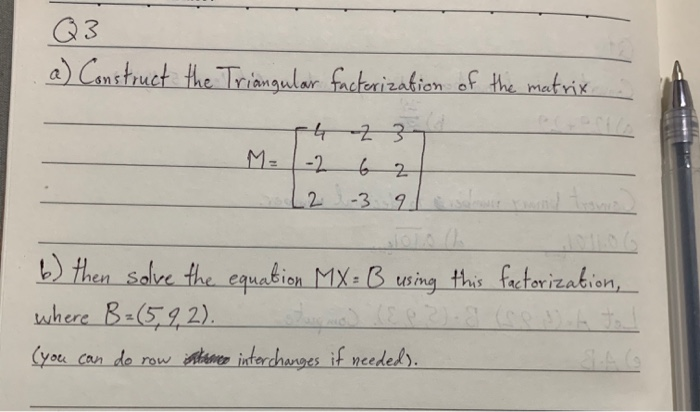 Q3
a) Construct the Triangular factorization of the matrix
4 -2 3
M= -2 6 2
2 -3 9
b) then solve the equation MX = B using this factorization,
where B=(5,9,2).
(you can do row interchanges if needed).